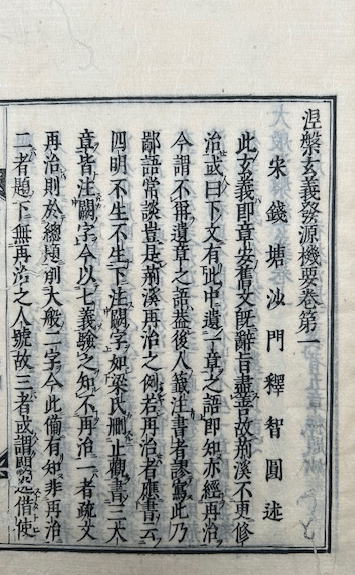 涅槃玄義發源機要卷第一
宋錢塘沙門釋智圓述
此玄義即章安舊文旣辭旨盡善故荊溪不更修
治或曰下文有此中遺一章之語即知亦經再治
今謂不挏遺章之語葢後人籤注書者謬寫此乃
鄙語常談豈是荊溪再治之例若再治者應書云
四明不生不生下注闕字如梁氏刪止觀書三大
章皆注闕字今以七義驗之知不再治一者疏文
再治則於總題削大般二字今此備有知非再治
二者題下無再治之人號故三者或謂是借使